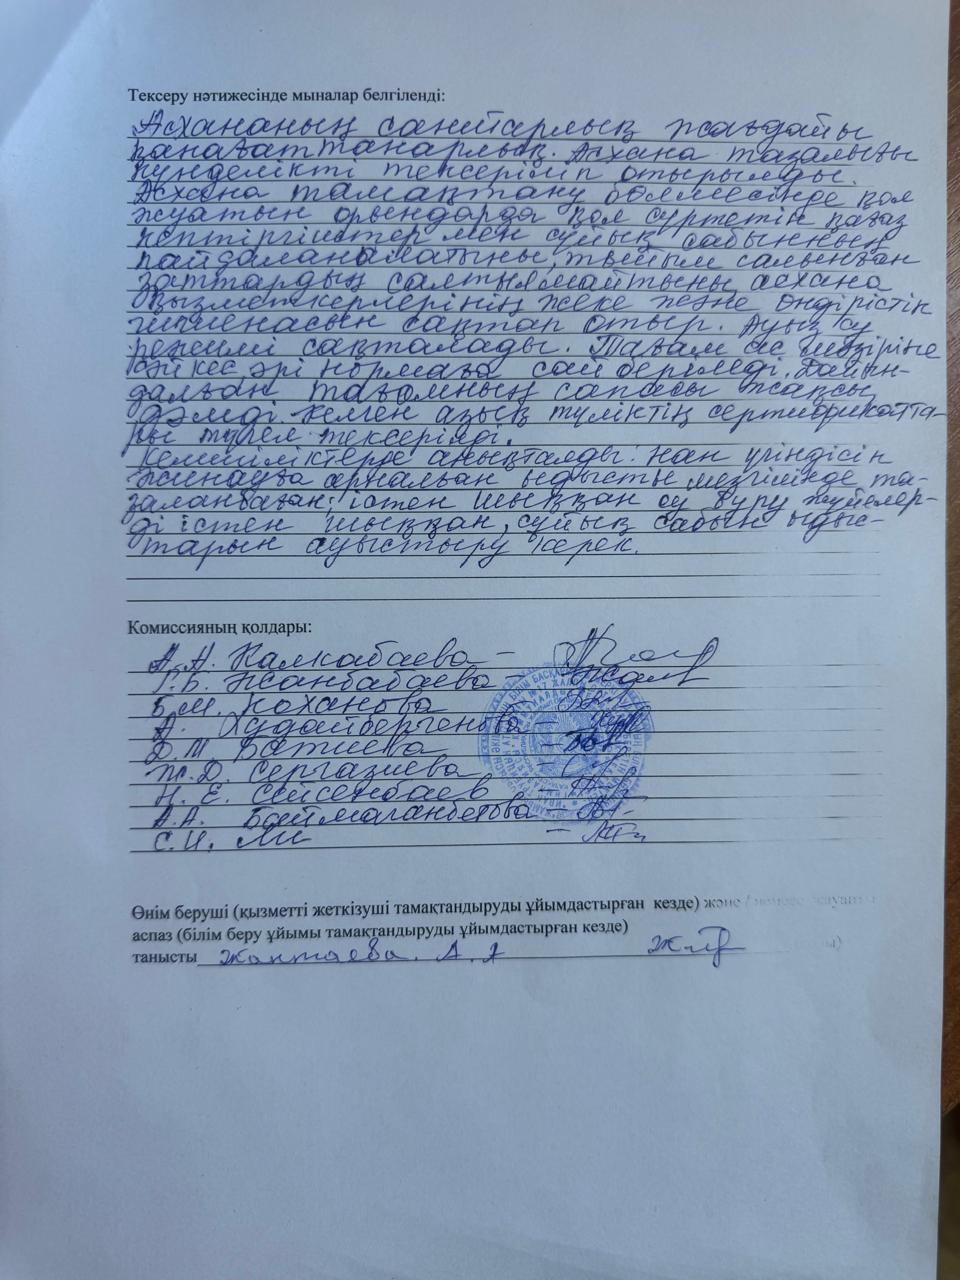 Тексеру нәтижесінде мыналар белгіленді:
Асхананың санитарлық жағдайы
қанағаттанарлық. Асхана тазалығы
күнделікті тексеріліп отырылды.
Асхана тамақтану бөлмесінде қол
жуатын орындарда қол сүртетін қағаз
кептіргіштер мен сұйық сабынның
пайдаланалатыны, тыйым салынған
заттардың сатылмайтыны, асхана
қызметкерлерінің жеке және өндірістік
гигиенасын сақтап отыр. Ауыз су
режимі сақталады. Тағам ас мәзіріне
сәйкес әрі нормаға сай беріледі. Дайын-
далған тағамның сапасы жақсы,
дәмді. Келген азық түліктің сертификатта-
ры түгел тексерілді.
Кемшіліктерде анықталды: нан үгіндісін
жинауға арналған ыдысты мезгілінде та-
заланбаған; істен шыққан су бұру жүйелер-
ді істен шыққан, сұйық сабын ыдыс-
тарын ауыстыру керек.
Комиссияның қолдары:
А.А. Калкабаева -
Г.Б. Жанбабаева
Б.М. Коханова
А. Худайбергенова -
Д.М. Батиева -
Ж.Д. Сергазиева
Н. Е. Сейсенбаев
А.А. Баймаганбетова -
С.И. Ли -
Өнім беруші (қызметті жеткізуші тамақтандыруды ұйымдастырған кезде) және /
аспаз (білім беру ұйымы тамақтандыруды ұйымдастырған кезде)
танысты Жантаева. А. А